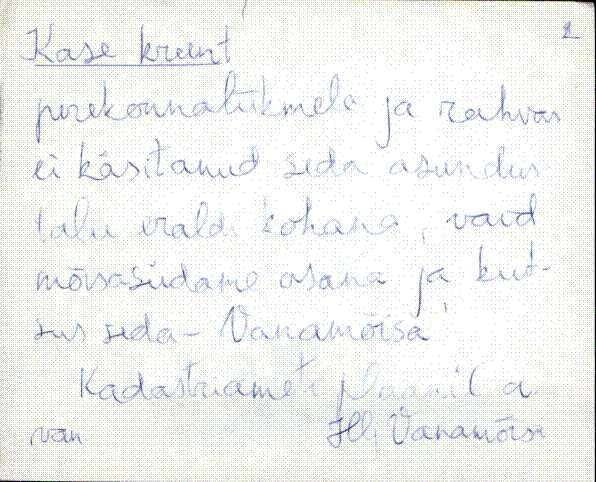 2
Kase kruunt
perekonnaliikmele ja rahvas
ei käsitanud seda asundus-
talu eraldi kohana, vaid
mõisasüdame osana ja kut-
sus seda - Vanamõisa
Kadastriameti plaanil a.
Vanamõisa